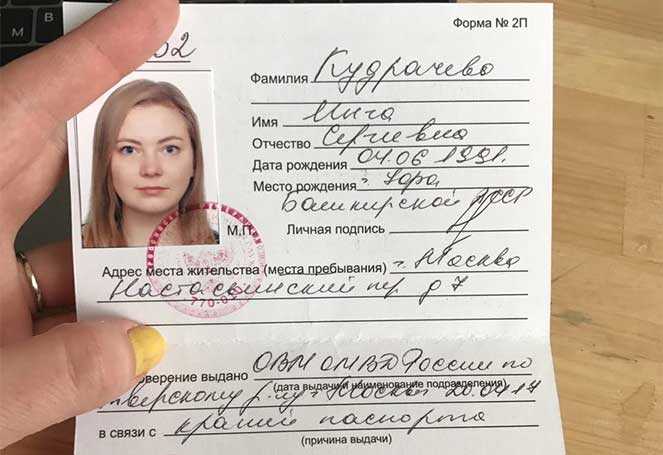 Форма № 2П
52
Фамилия Кудрачева
Имя Инга
Отчество Сергеевна
Дата рождения 04.06 1991.
Место рождения г.
Башкирской АССР
М.П. Личная подпись
Адрес места жительства (места пребывания) г. Москва
Настасьинский пер. д 7
оверение выдано ОВМ ОМВД России по
(дата выдачи и наименование подразделения)
верскому р-ну г. Москвы 20.04.17
в связи с кражей паспорта
(причина выдачи)